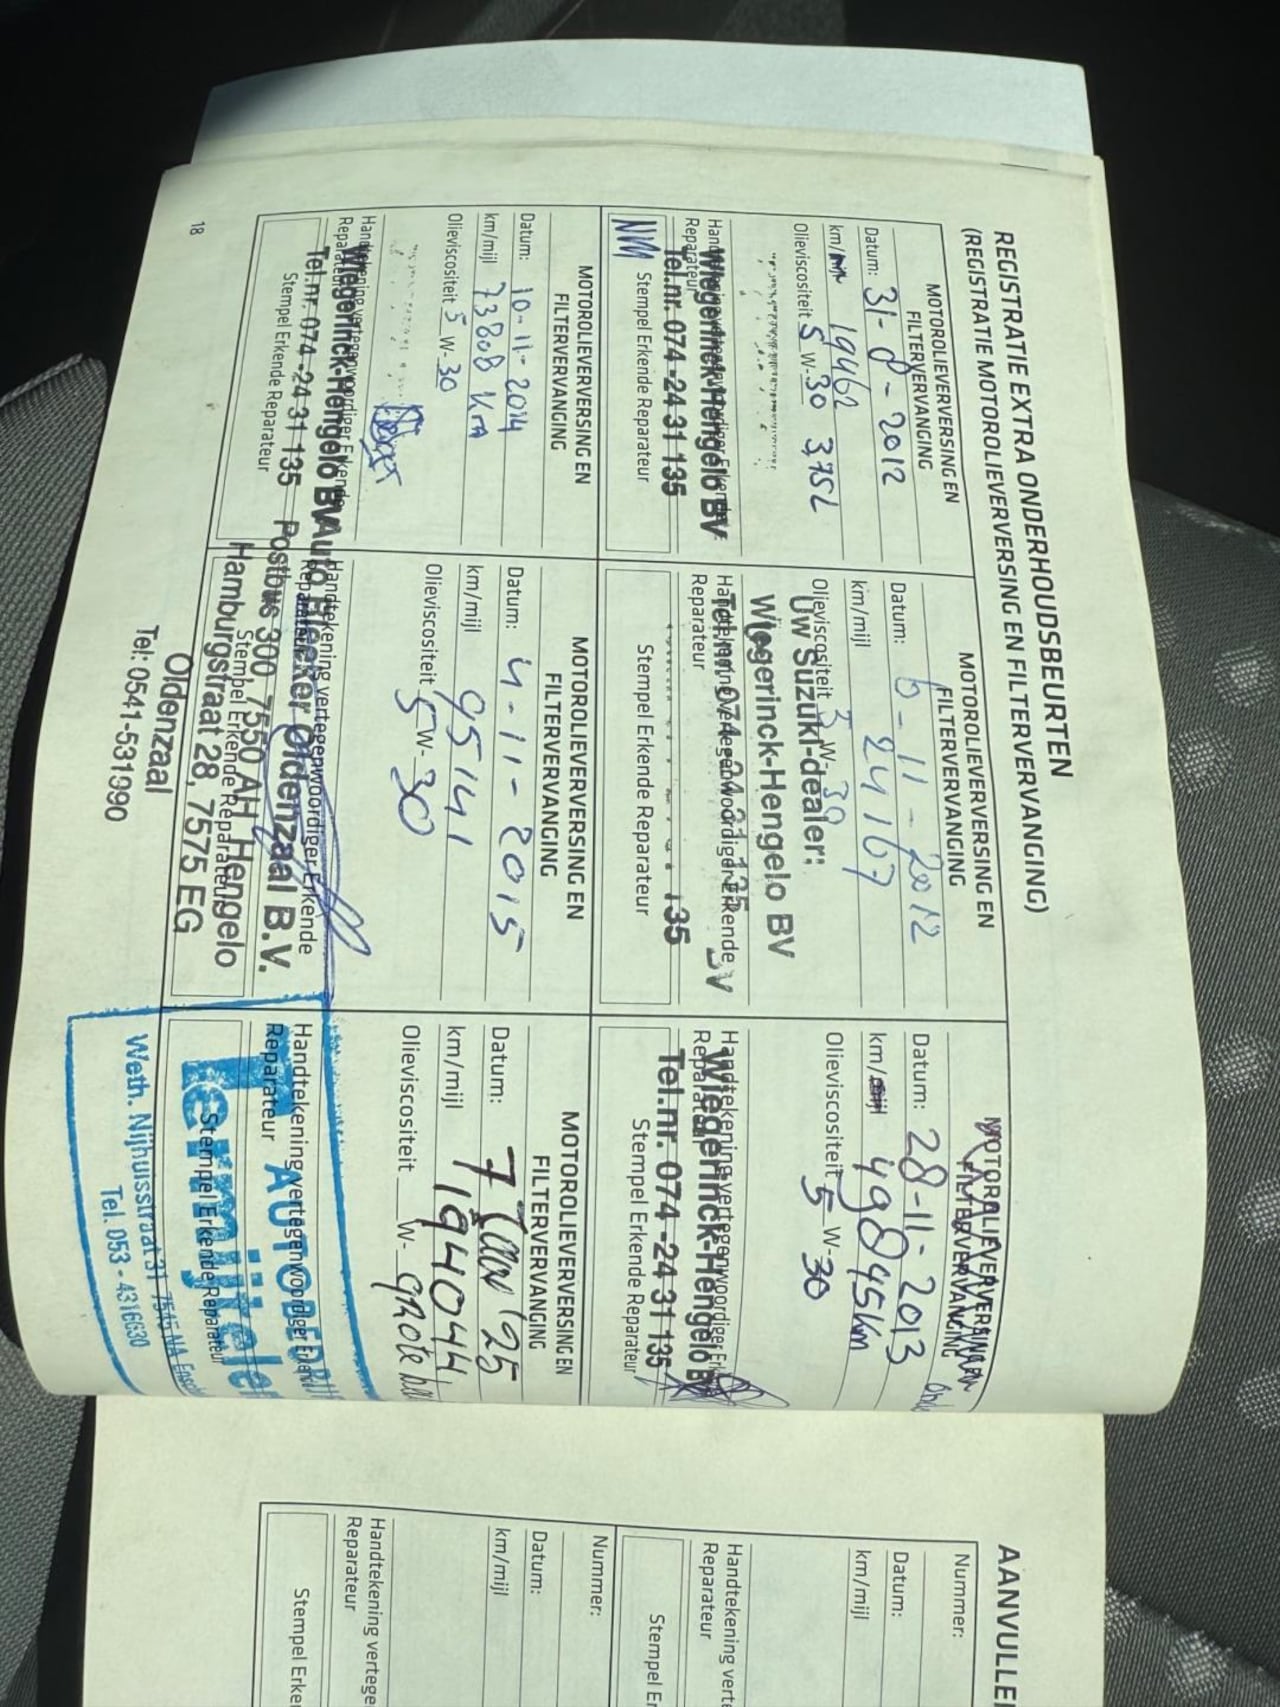 REGISTRATIE EXTRA ONDERHOUDSBEURTEN
(REGISTRATIE MOTOROLIEVERVERSING EN FILTERVERVANGING)
MOTOROLIEVERVERSING EN
FILTERVERVANGING
Datum: 31-8-2012
km/mijl 19462
Olieviscositeit 5 W-30 3,75L
Handtekening vertegenwoordiger Erkende
Reparateur
Wiegerinck-Hengelo BV
Tel.nr. 074-24 31 135
NVM Stempel Erkende Reparateur
MOTOROLIEVERVERSING EN
FILTERVERVANGING
Datum: 6-11-2012
km/mijl 24167
Olieviscositeit W-30
Uw Suzuki-dealer:
Wiegerinck-Hengelo BV
Tel.nr. 074-24 31 135
Handtekening vertegenwoordiger Erkende
Reparateur
BV
135
Stempel Erkende Reparateur
MOTOROLIEVERVERSING EN
FILTERVERVANGING
Datum: 28-11-2013
km/mijl 49845km
Olieviscositeit 5 W-30
Handtekening vertegenwoordiger Erkende
Reparateur
Wiegerinck-Hengelo B
Tel.nr. 074-24 31 135
Stempel Erkende Reparateur
MOTOROLIEVERVERSING EN
FILTERVERVANGING
Datum: 10-11-2014
km/mijl 73808 Km
Olieviscositeit 5 W-30
Handtekening vertegenwoordiger Erkende
Reparateur
Wiegerinck-Hengelo BV
Tel.nr. 074-24 31 135
Stempel Erkende Reparateur
MOTOROLIEVERVERSING EN
FILTERVERVANGING
Datum: 4-11-2015
km/mijl 95141
Olieviscositeit 5 W-30
Handtekening vertegenwoordiger Erkende
Reparateur
Auto Bleeker Oldenzaal B.V.
Postbus 300, 7550 AH Hengelo
Stempel Erkende Reparateur
Hamburgstraat 28, 7575 EG
Oldenzaal
Tel: 0541-531990
MOTOROLIEVERVERSING EN
FILTERVERVANGING
Datum: 7 Jan '25
km/mijl 194044
Olieviscositeit W- grote
Handtekening vertegenwoordiger Erkende
Reparateur
AUTOBEDRIJF
Stempel Erkende Reparateur
Weth. Nijhuisstraat 31 7545 NA Ensch
Tel. 053-4316630
18
AANVULLE
Nummer:
Datum:
km/mijl
Handtekening verte
Reparateur
Stempel Er
Nummer:
Datum:
km/mijl
Handtekening vertege
Reparateur
Stempel Erke